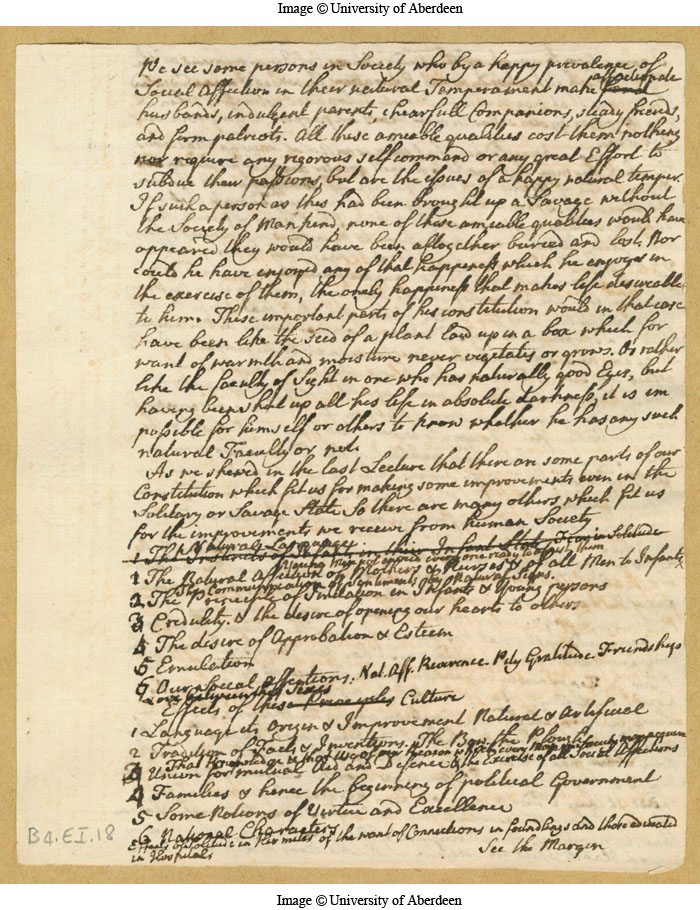 Image © University of Aberdeen
We see some persons in Society who by a happy prevalence of
Social Affection in their natural Temperament make affectionate
husbands, indulgent parents, chearfull Companions, steady friends,
and firm patriots. All these ameable qualities cost them nothing
nor require any rigorous self command or any great Effort to
subdue their passions, but are the issues of a happy natural temper.
If such a person as this had been brought up a Savage without
the Society of Mankind, none of these ameable qualities would have
appeared they would have been altogether buried and lost. Nor
could he have enjoyed any of that happeness which he enjoyes in
the exercise of them, the onely happiness that makes life desireable
to him. These important parts of his constitution would in that case
have been like the seed of a plant laid up in a box which for
want of warmth and moisture never vegetates or grows. Or rather
like the faculty of Sight in one who has naturally good Eyes, but
having been shut up all his life in absolute darkness, it is im
possible for himself or others to know whether he has any such
natural Faculty or not.
As we shewed in the last Lecture that there are some parts of our
Constitution which fit us for making some improvements even in the
Solitary or Savage State So there are many others which fit us
for the improvements we receive from human Society
Natural Language.
1 The Natural Affection of Mothers & Nurses & of all Men to Infants
The Communication of Sentiments by Natural Signs.
2 The Principle of Imitation in Infants & Young persons
3 Credulity. & the desire of opening our hearts to others
4 The desire of Approbation & Esteem
5 Emulation
6 Our social affections. Nat. Aff. Reverence. Pity Gratitude. Friendship
Love between the Sexes
Effects of these Principles Culture
1 Language its Origin & Improvement Natural & Artificial
2 Tradition of Facts & Inventions. The Bow the Plough
That Knowledge & that Use of our Reason which every Man in Society may acquire
3 Union for mutual Aid and Defence & the Exercise of all Social Affections
4 Families & hence the beginning of political Government
5 Some Notions of Virtue and Excellence
6 National Characters
Effects of Solitude in Hermites of the want of Connections in foundlings and those educated
in Hospitals
See the Margin
B4.EI.18
Image © University of Aberdeen